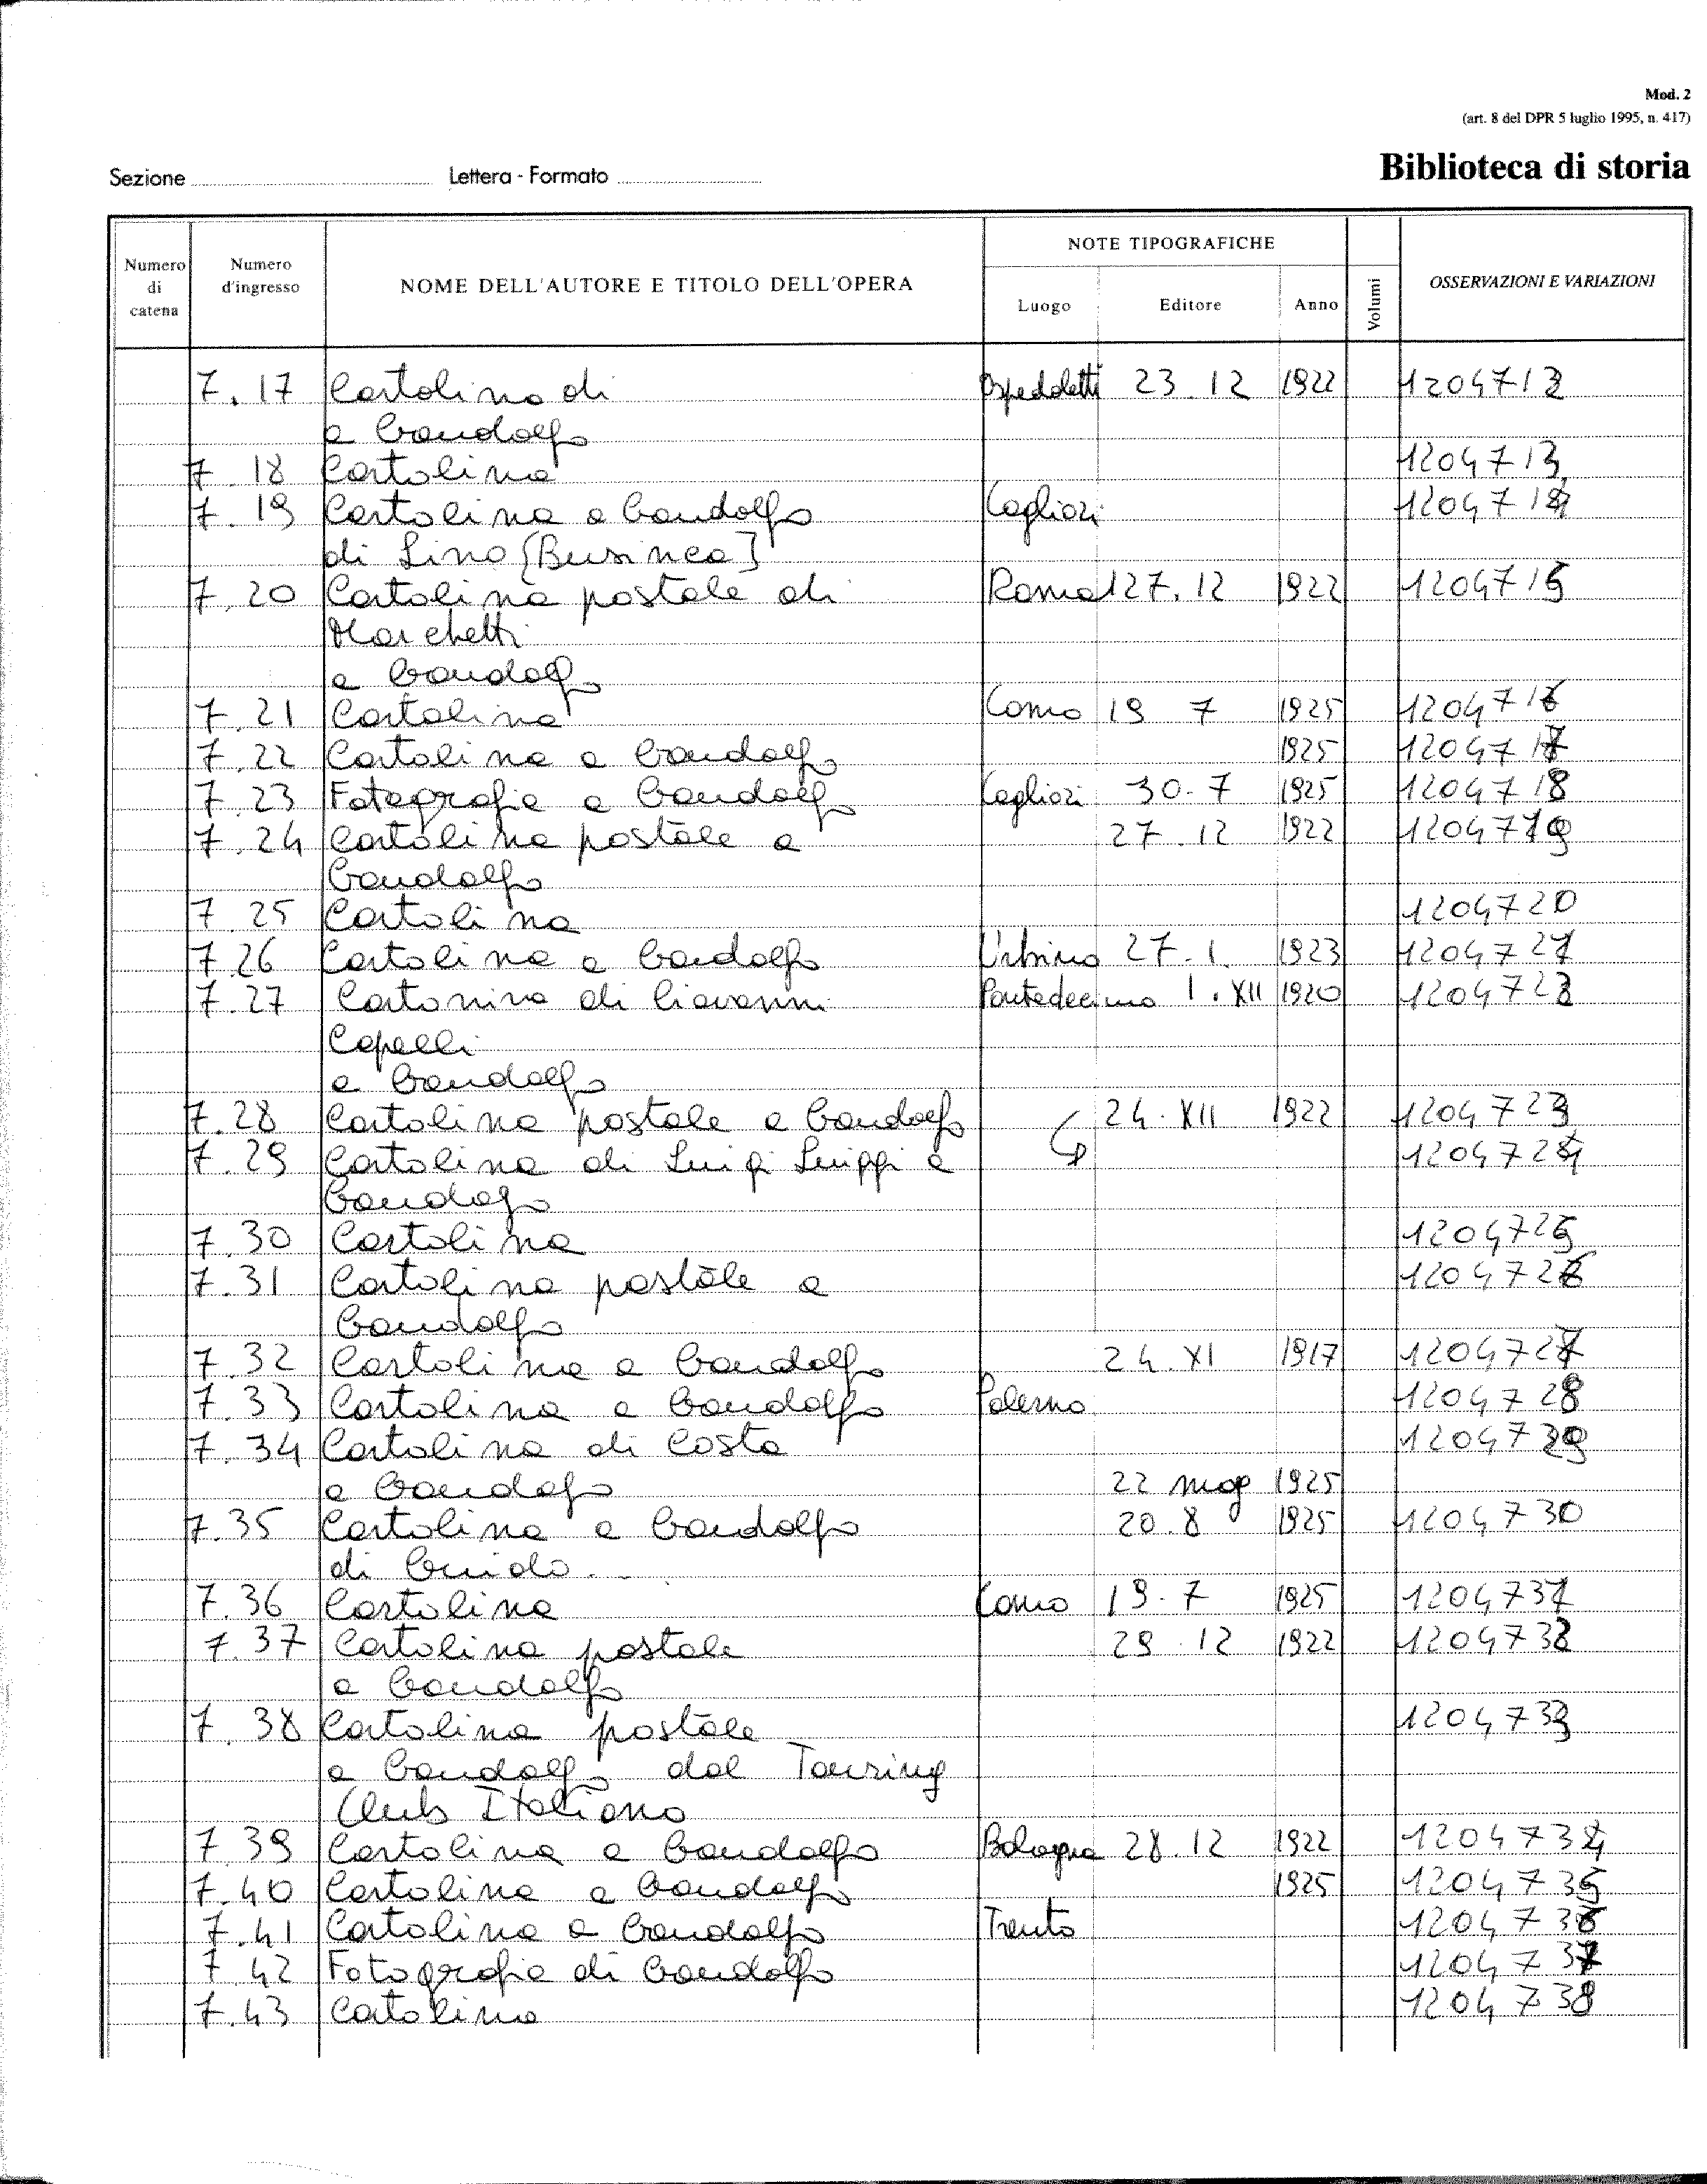 Mod. 2
(art. 8 del DPR 5 luglio 1995, n. 417)
Sezione Lettera - Formato Biblioteca di storia
Numero di catena
Numero d'ingresso
NOME DELL'AUTORE E TITOLO DELL'OPERA
NOTE TIPOGRAFICHE
Luogo Editore Anno
Volumi
OSSERVAZIONI E VARIAZIONI
7.17 Cartolina di Ospedaletti 23.12 1922 1204712
a Gandolfo
7.18 Cartolina 1204713
7.19 Cartolina a Gandolfo Cagliari 1204714
di Lino [Businco]
7.20 Cartolina postale di Roma 27.12 1922 1204715
Marchetti
a Gandolfo
7.21 Cartolina Como 19 7 1925 1204716
7.22 Cartolina a Gandolfo 1925 1204717
7.23 Fotografia a Gandolfo Cagliari 30.7 1925 1204718
7.24 Cartolina postale a 27.12 1922 1204719
Gandolfo
7.25 Cartolina 1204720
7.26 Cartolina a Gandolfo Urbino 27.1. 1923 1204721
7.27 Cartonina di Giovanni Pontedecimo 1.XII 1920 1204722
Capelli
a Gandolfo
7.28 Cartolina postale a Gandolfo 24.XII 1922 1204723
7.29 Cartolina di Luigi a 1204724
Gandolfo
7.30 Cartolina 1204725
7.31 Cartolina postale a 1204726
Gandolfo
7.32 Cartolina a Gandolfo 24.XI 1917 1204727
7.33 Cartolina a Gandolfo Palermo 1204728
7.34 Cartolina di Costa 1204729
a Gandolfo 22 mag 1925
7.35 Cartolina a Gandolfo 20.8 1925 1204730
di Guido...
7.36 Cartolina Como 19.7 1925 1204731
7.37 Cartolina postale 29.12 1922 1204732
a Gandolfo
7.38 Cartolina postale 1204733
a Gandolfo dal Touring
Club Italiano
7.39 Cartolina a Gandolfo Bologna 28.12 1922 1204734
7.40 Cartolina a Gandolfo 1925 1204735
7.41 Cartolina a Gandolfo Trento 1204736
7.42 Fotografia di Gandolfo 1204737
7.43 Cartolina 1204738